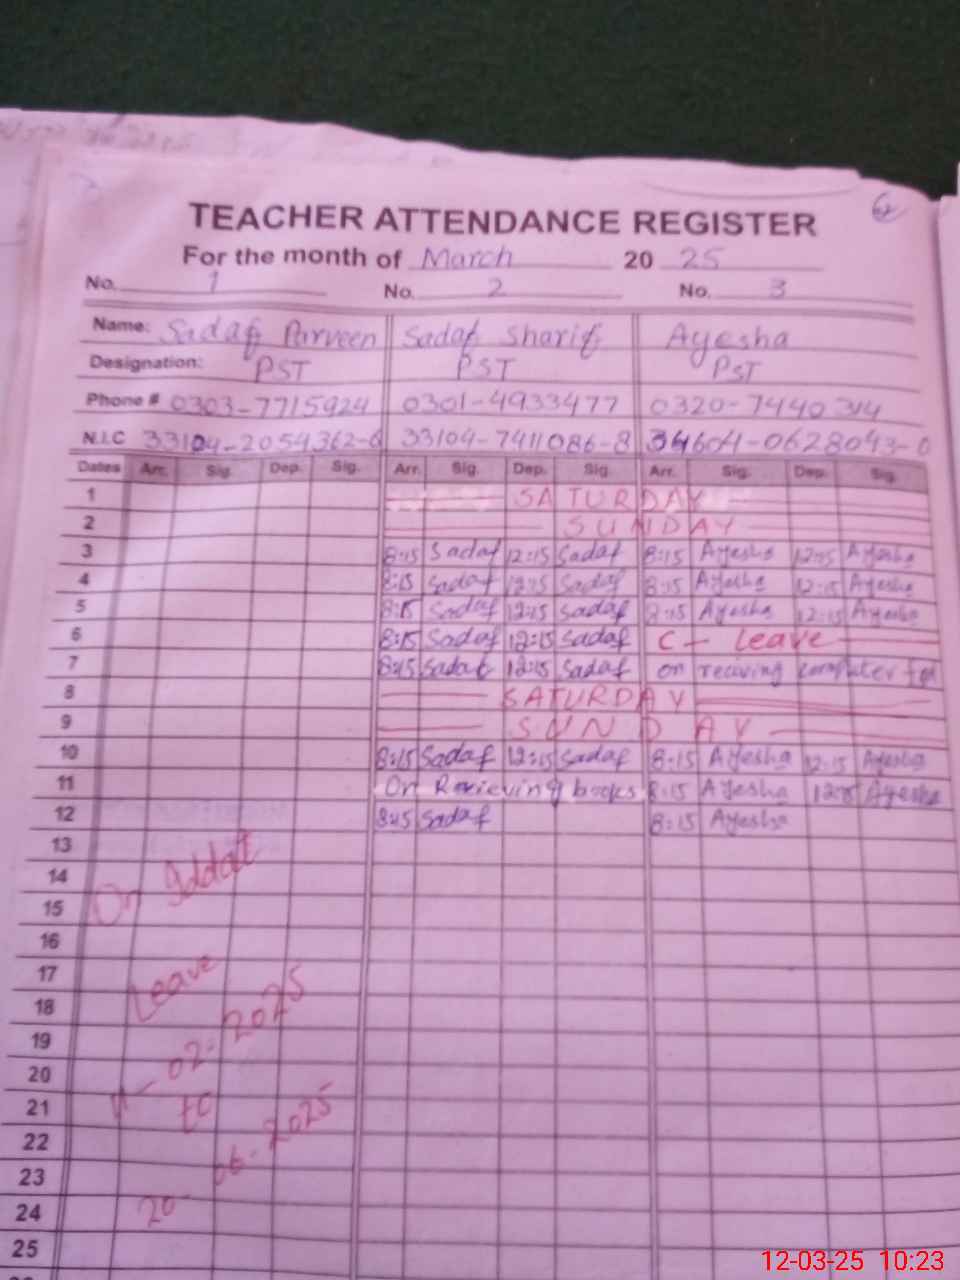 TEACHER ATTENDANCE REGISTER
For the month of March 20 25
No. 1 No. 2 No. 3
Name: Sadaf Parveen Sadaf Sharif Ayesha
Designation: PST PST PST
Phone # 0303-7715924 0301-4933477 0320-7440314
N.I.C 33104-2054362-6 33104-7411086-8 34604-0628043-0
Dates Arr. Sig. Dep. Sig. Arr. Sig. Dep. Sig. Arr. Sig. Dep. Sig.
1 SATURDAY
2 SUNDAY
3 8:15 Sadaf 12:15 Sadaf 8:15 Ayesha 12:15 Ayesha
4 8:15 Sadaf 12:15 Sadaf 8:15 Ayesha 12:15 Ayesha
5 8:15 Sadaf 12:15 Sadaf 8:15 Ayesha 12:15 Ayesha
6 8:15 Sadaf 12:15 Sadaf C - Leave
7 8:15 Sadaf 12:15 Sadaf on reciving computer
8 SATURDAY
9 SUNDAY
10 8:15 Sadaf 12:15 Sadaf 8:15 Ayesha 12:15 Ayesha
11 On Recieving books 8:15 Ayesha 12:15 Ayesha
12 8:15 Sadaf 8:15 Ayesha
13
14
15
16
17
18
19
20
21
22
23
24
25
On Iddatt
Leave
11-02-2025
to
20-06-2025
12-03-25 10:23